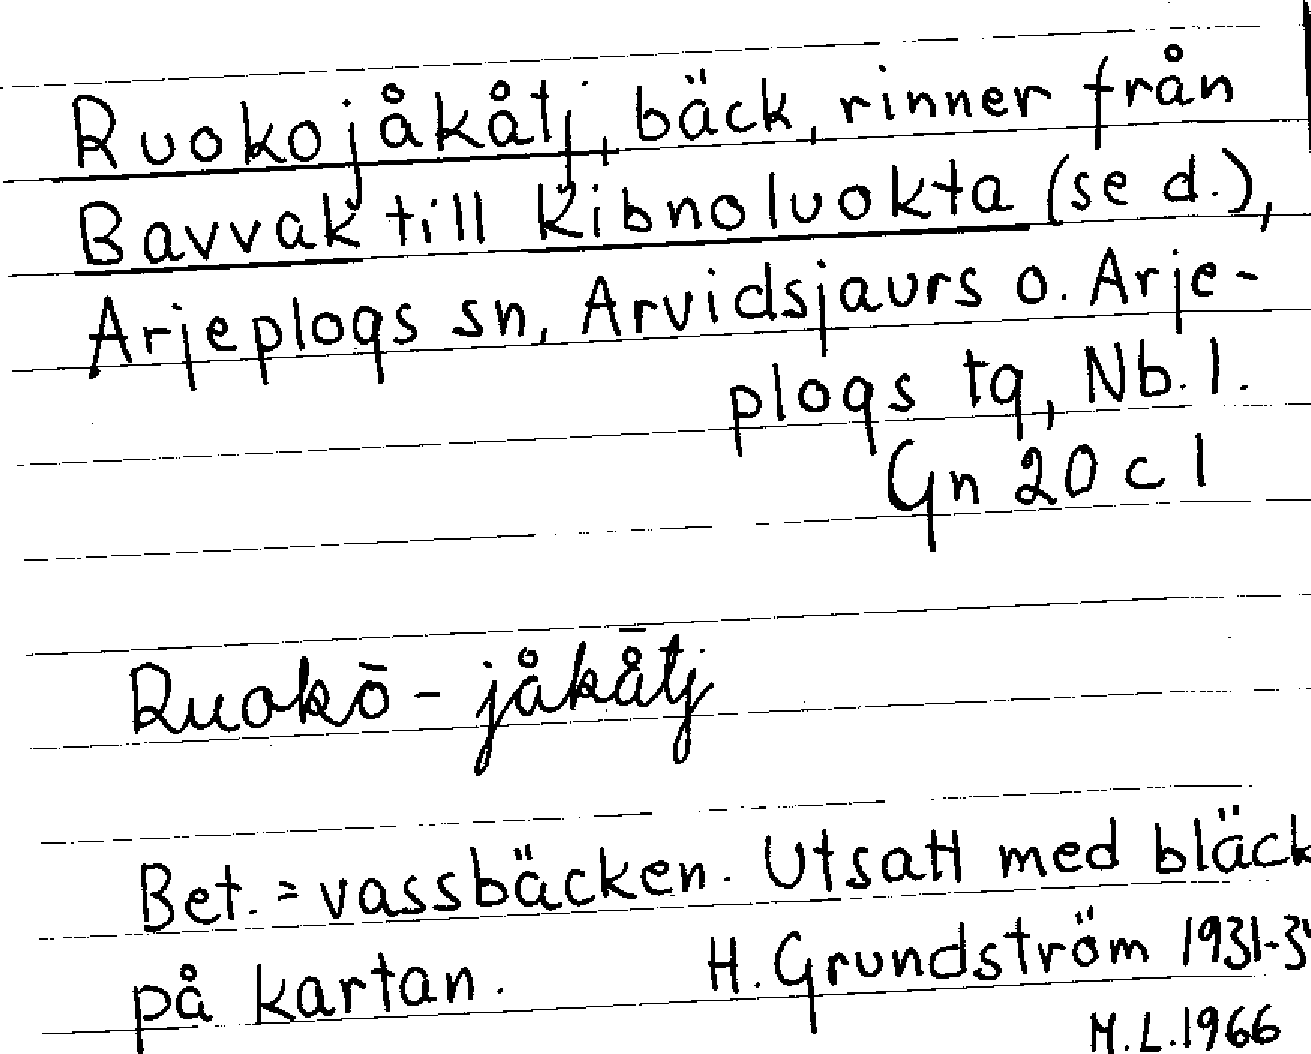 Ruokojåkåtj, bäck, rinner från
Bavvak till Kibnoluokta (se d.),
Arjeplogs sn, Arvidsjaurs o. Arje-
plogs tg, Nb. l.
Gn 20 c 1
Ruokō - jåkå̄tj
Bet. = vassbäcken. Utsatt med bläck
på kartan. H. Grundström 1931-3
M.L.1966